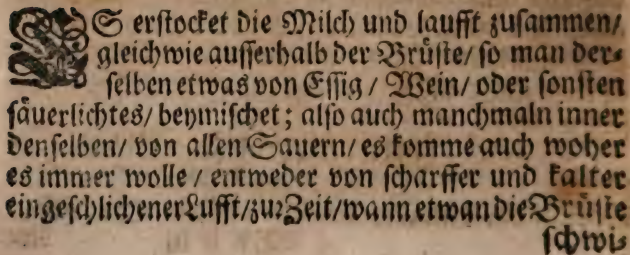 ES erstocket die Milch und laufft zusammen/
gleichwie ausserhalb der Brüste/ so man der-
selben etwas von Essig / Wein/ oder sonsten
säuerlichtes/ beymischet; also auch manchmaln inner
denselben/ von allen Sauern/ es komme auch woher
es immer wolle / entweder von scharffer und kalter
eingeschlichener Lufft/ zur Zeit/ wann etwan die Brüste
schwi-